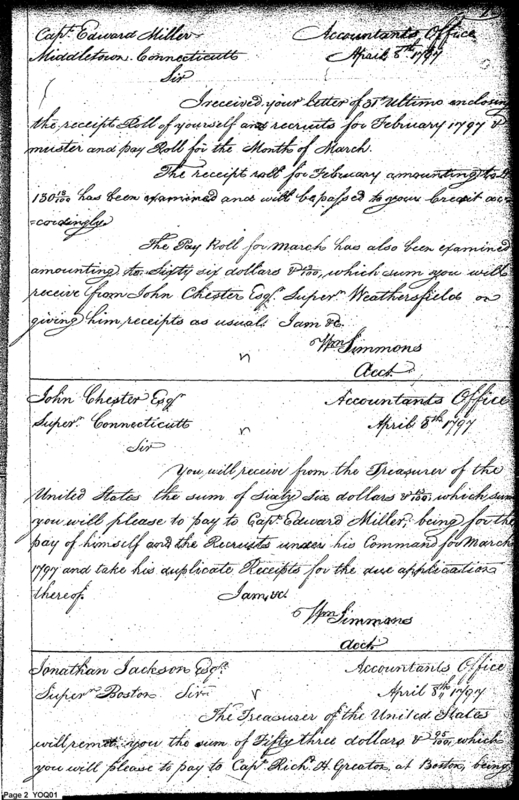 Capt. Edward Miller
Accountants Office
Middletown. Connecticutt
April 8th 1797
Sir
I received your letter of 31st Ultimo inclosing
the receipt Roll of yourself and recruits for February 1797 &
muster and pay Roll for the Month of March.
The receipt roll for February amounting to
130 has been examined and will be passed to your Credit ac=
=cordingly
The Pay Roll for March has also been examined
amounting to Sixty six dollars & which sum you will
receive from John Chester Esqr. Supervr. Weathersfield on
giving him receipts as usual. I am &c
Wm Simmons
Acct.
John Chester Esqr.
Accountants Office
Superv. Connecticutt
April 8th 1797
Sir
You will receive from the Treasurer of the
United States the sum of sixty six dollars & which sum
you will please to pay to Capt. Edward Miller, being for the
pay of himself and the Recruits under his Command for March
1797 and take his duplicate Receipts for the due application
thereof.
I am &c
Wm Simmons
Acct.
Jonathan Jackson Esqr.
Accountants Office
Supervr Boston Sir
April 8th 1797
The Treasurer of the United States
will remitt you the sum of Fifty three dollars & 95/100, which
you will please to pay to Capt. Richd. H. Greaton, at Boston, being
Page 2 YOQ01